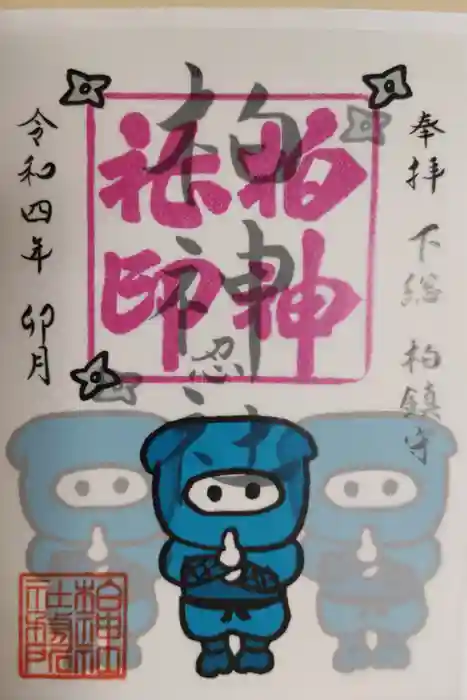 奉拝 下総 柏鎮守
柏神
社印
柏神社
忍
令和四年 卯月
柏神社
社務所印